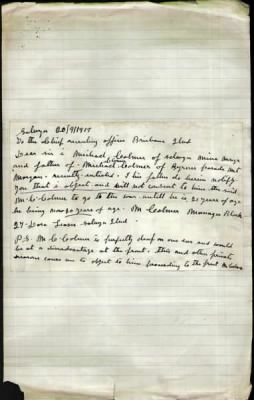 Selwyn 20/9/1917
To the Chief recruiting officer Brisbane Qlnd
Dear sir i Michael Coolmer of selwyn mine manager
and father of Michael Coolmer of Byrnes parade Mt
Morgan recently enlisted. I his father do herein notify
you that i object and will not consent to him the said
M C Coolmer to go to the war untill he is 21 years of age
he being now 20 years of age. M Coolmer Manager Black
Lease selwyn Qlnd
P.S. M C Coolmer is partially deaf on one ear and would
be at a disadvantage at the front. this and other private
reasons causes me to object to him proceeding to the front M Coolmer